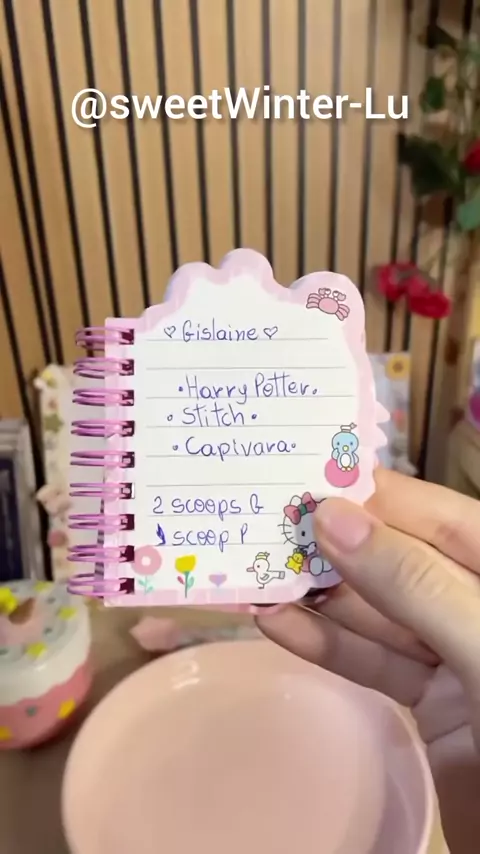 @sweetWinter-Lu
♡ Gislaine ♡
• Harry Potter.
• Stitch •
• Capivara •
2 scoops G
1 scoop P